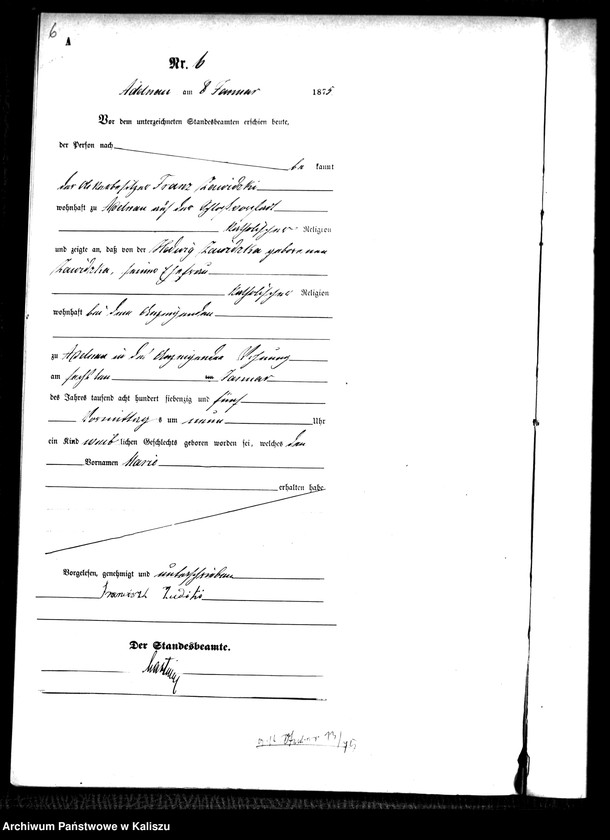 6
A
Nr. 6
Adelnau am 8 Januar 1875
Vor dem unterzeichneten Standesbeamten erschien heute,
der Person nach
be kannt
der Ackerbesitzer Franz Zawidzki
wohnhaft zu Adelnau auf der
katholischer Religion
und zeigte an, daß von der Hedwig Zawidzka geborenen
Zawidzka, seiner Ehefrau
katholischer Religion
wohnhaft bei dem Anzeigenden
zu Adelnau in des Anzeigenden Wohnung
am sechsten Januar
des Jahres tausend acht hundert siebenzig und fünf
Vormittags um neun Uhr
ein Kind weib lichen Geschlechts geboren worden sei, welches den
Vornamen Marie
erhalten habe.
Vorgelesen, genehmigt und unterschrieben
Der Standesbeamte.
13/75
Archiwum Państwowe w Kaliszu